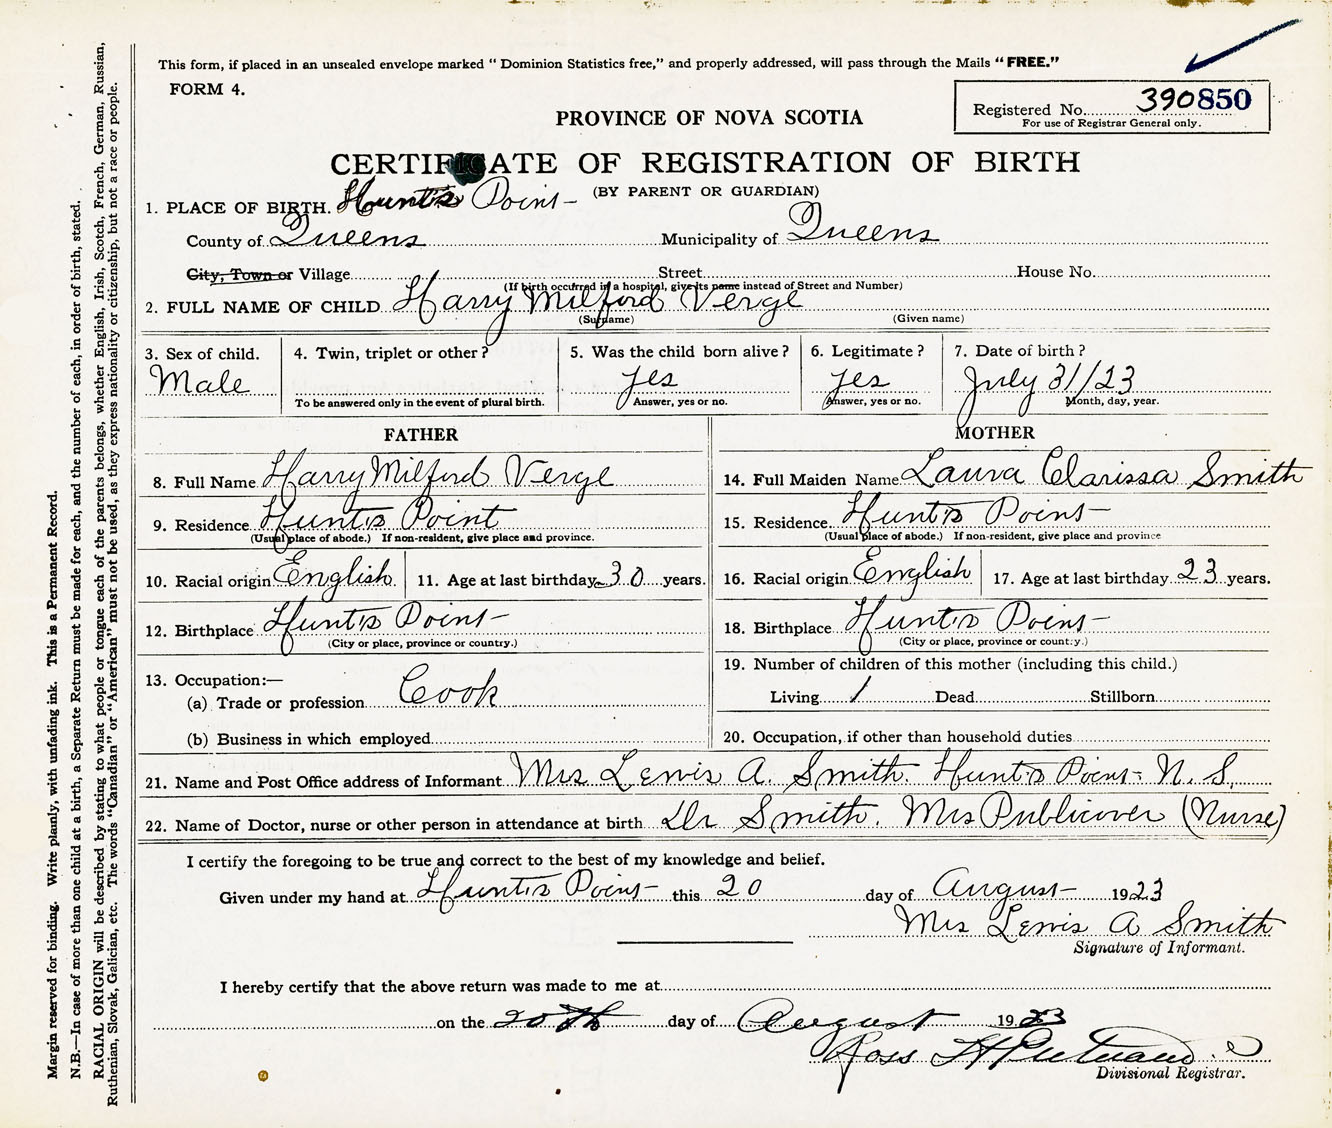 This form, if placed in an unsealed envelope marked "Dominion Statistics free," and properly addressed, will pass through the Mails "FREE."
FORM 4.
Registered No. 390850
For use of Registrar General only.
PROVINCE OF NOVA SCOTIA
CERTIFICATE OF REGISTRATION OF BIRTH
(BY PARENT OR GUARDIAN)
1. PLACE OF BIRTH. Hunt's Point
County of Queens Municipality of Queens
City, Town or Village Street House No.
(If birth occurred in a hospital, give its name instead of Street and Number)
2. FULL NAME OF CHILD Harry Milford Verge
(Surname) (Given name)
3. Sex of child. 4. Twin, triplet or other? 5. Was the child born alive? 6. Legitimate? 7. Date of birth?
Male yes yes July 31/23
To be answered only in the event of plural birth. Answer, yes or no. Answer, yes or no. Month, day, year.
FATHER
8. Full Name Harry Milford Verge
9. Residence Hunt's Point
(Usual place of abode.) If non-resident, give place and province.
10. Racial origin English 11. Age at last birthday 30 years.
12. Birthplace Hunt's Point
(City or place, province or country.)
13. Occupation:—
(a) Trade or profession Cook
(b) Business in which employed
MOTHER
14. Full Maiden Name Laura Clarissa Smith
15. Residence Hunt's Point
(Usual place of abode.) If non-resident, give place and province
16. Racial origin English 17. Age at last birthday 23 years.
18. Birthplace Hunt's Point
(City or place, province or country.)
19. Number of children of this mother (including this child.)
Living 1 Dead Stillborn
20. Occupation, if other than household duties
21. Name and Post Office address of Informant Mrs Lewis A. Smith. Hunt's Point N. S.
22. Name of Doctor, nurse or other person in attendance at birth Dr Smith. Mrs Publicover (Nurse)
I certify the foregoing to be true and correct to the best of my knowledge and belief.
Given under my hand at Hunt's Point this 20 day of August 1923
Mrs Lewis A Smith
Signature of Informant.
I hereby certify that the above return was made to me at
on the 20th day of August 1923
Ross
Divisional Registrar.
Margin reserved for binding. Write plainly, with unfading ink. This is a Permanent Record.
N.B.—In case of more than one child at a birth, a Separate Return must be made for each, and the number of each, in order of birth, stated.
RACIAL ORIGIN will be described by stating to what people or tongue each of the parents belongs, whether English, Irish, Scotch, French, German, Russian,
Ruthenian, Slovak, Galician, etc. The words "Canadian" or "American" must not be used, as they express nationality or citizenship, but not a race or people.